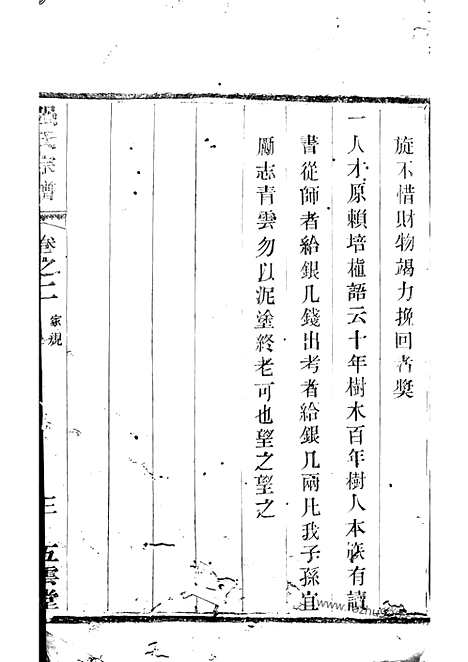 旋不惜財物竭力挽回者獎
一人才原賴培植語云十年樹木百年樹人本族有讀
書從師者給銀几錢出考者給銀几兩凡我子孫宜
勵志青雲勿以泥塗終老可也望之望之
氏宗譜
卷之二
家規
三
五雲堂